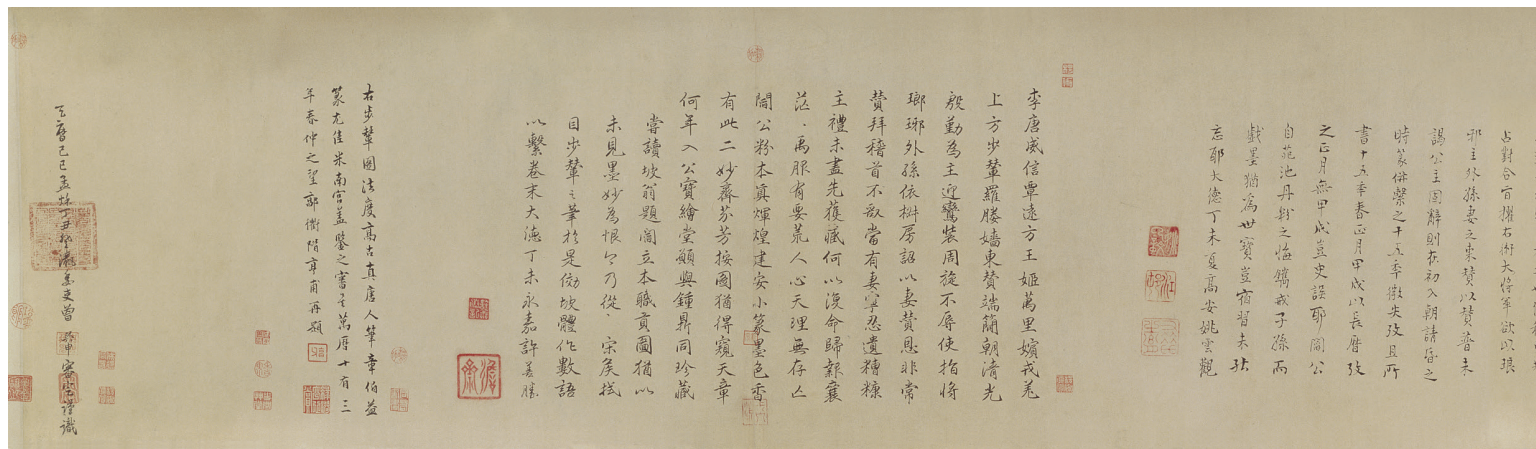 占對合旨擢右衛大將軍欲以琅
邪主外孫妻之東贊以贊普未
謁公主固辭則在初入朝請昏之
時篆併繫之十五年微失攷且所
書十五年春正月甲戌以長曆攷
之正月無甲戌豈史誤耶閻公
自苑池丹粉之悔鐫戒子孫而
戲墨猶為世寶豈宿習未能
忘耶大德丁未夏高安姚雲觀
李唐威信覃遠方王姬萬里嬪戎羌
上方步輦羅媵嬙東贊端簡朝清光
殷勤為主迎鸞裝周旋不辱使指將
瑯琊外孫依椒房詔以妻贊恩非常
贊拜稽首不敢當有妻寧忍遺糟糠
主禮未盡先獲臧何以復命歸報襄
茫禹服有要荒人心天理無存亡
閻公粉本真煇煌建安小篆墨色香
有此二妙齋芬芳按圖猶得窺天章
何年入公寶繪堂願與鍾鼎同珍藏
嘗讀坡翁題閻立本職貢圖猶以
未見墨妙為恨今乃從宋侯拭
目步輦之筆於是倣坡體作數語
以繫卷末大德丁未永嘉許善勝
右步輦圖法度高古真唐人筆章伯益
篆尤佳米南宮蓋鑒之審矣萬曆十有三
年春仲之望郭衢階亨甫再題
天曆己巳孟秋丁丑
審定謹識